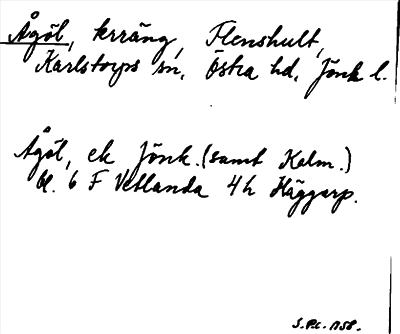 Ågöl, kräng, Flenshult,
Karlstorps sn, Östra hd, Jönk l.
Ågöl, ek Jönk. (samt Kalm.)
bl. 6 F Vetlanda 4h Häggarp.